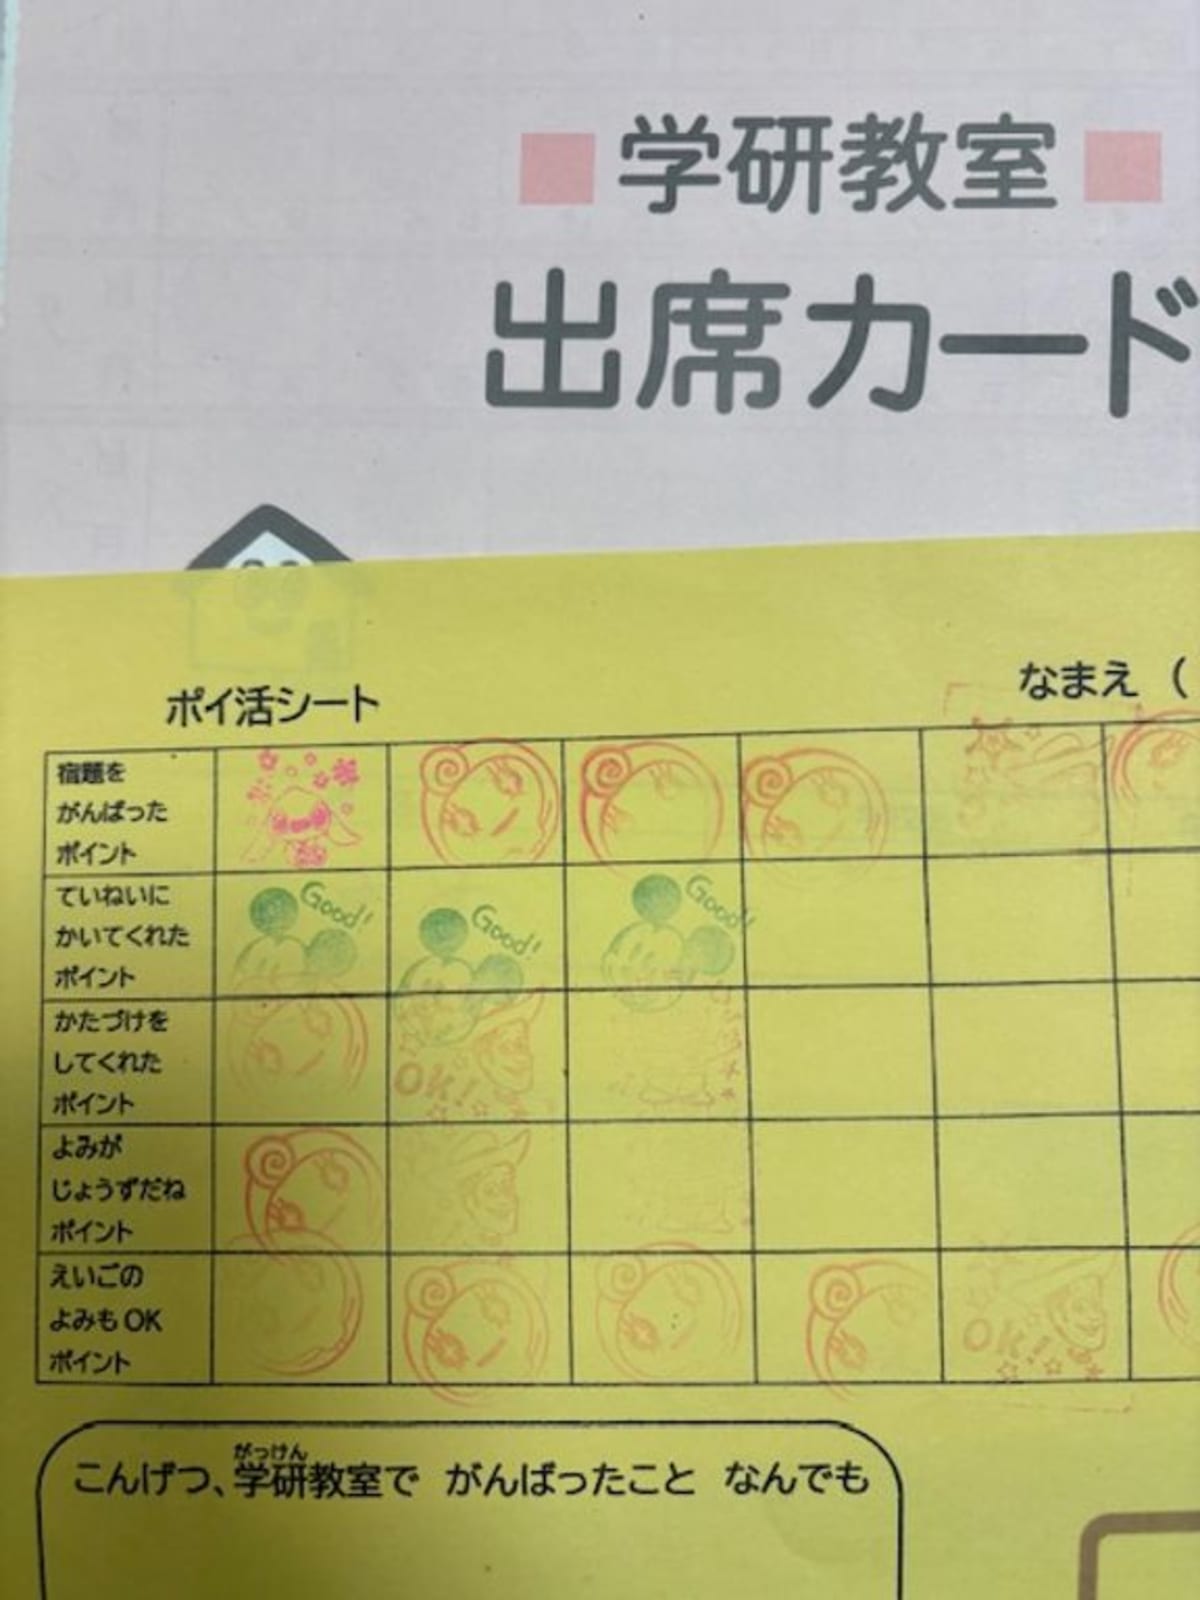 学研教室
出席カード
ポイ活シート
なまえ（
宿題を
がんばった
ポイント
Good!
Good!
Good!
ていねいに
かいてくれた
ポイント
かたづけを
してくれた
ポイント
OK!
よみが
じょうずだね
ポイント
えいごの
よみもOK
ポイント
OK!
がっけん
こんげつ、学研教室で がんばったこと なんでも